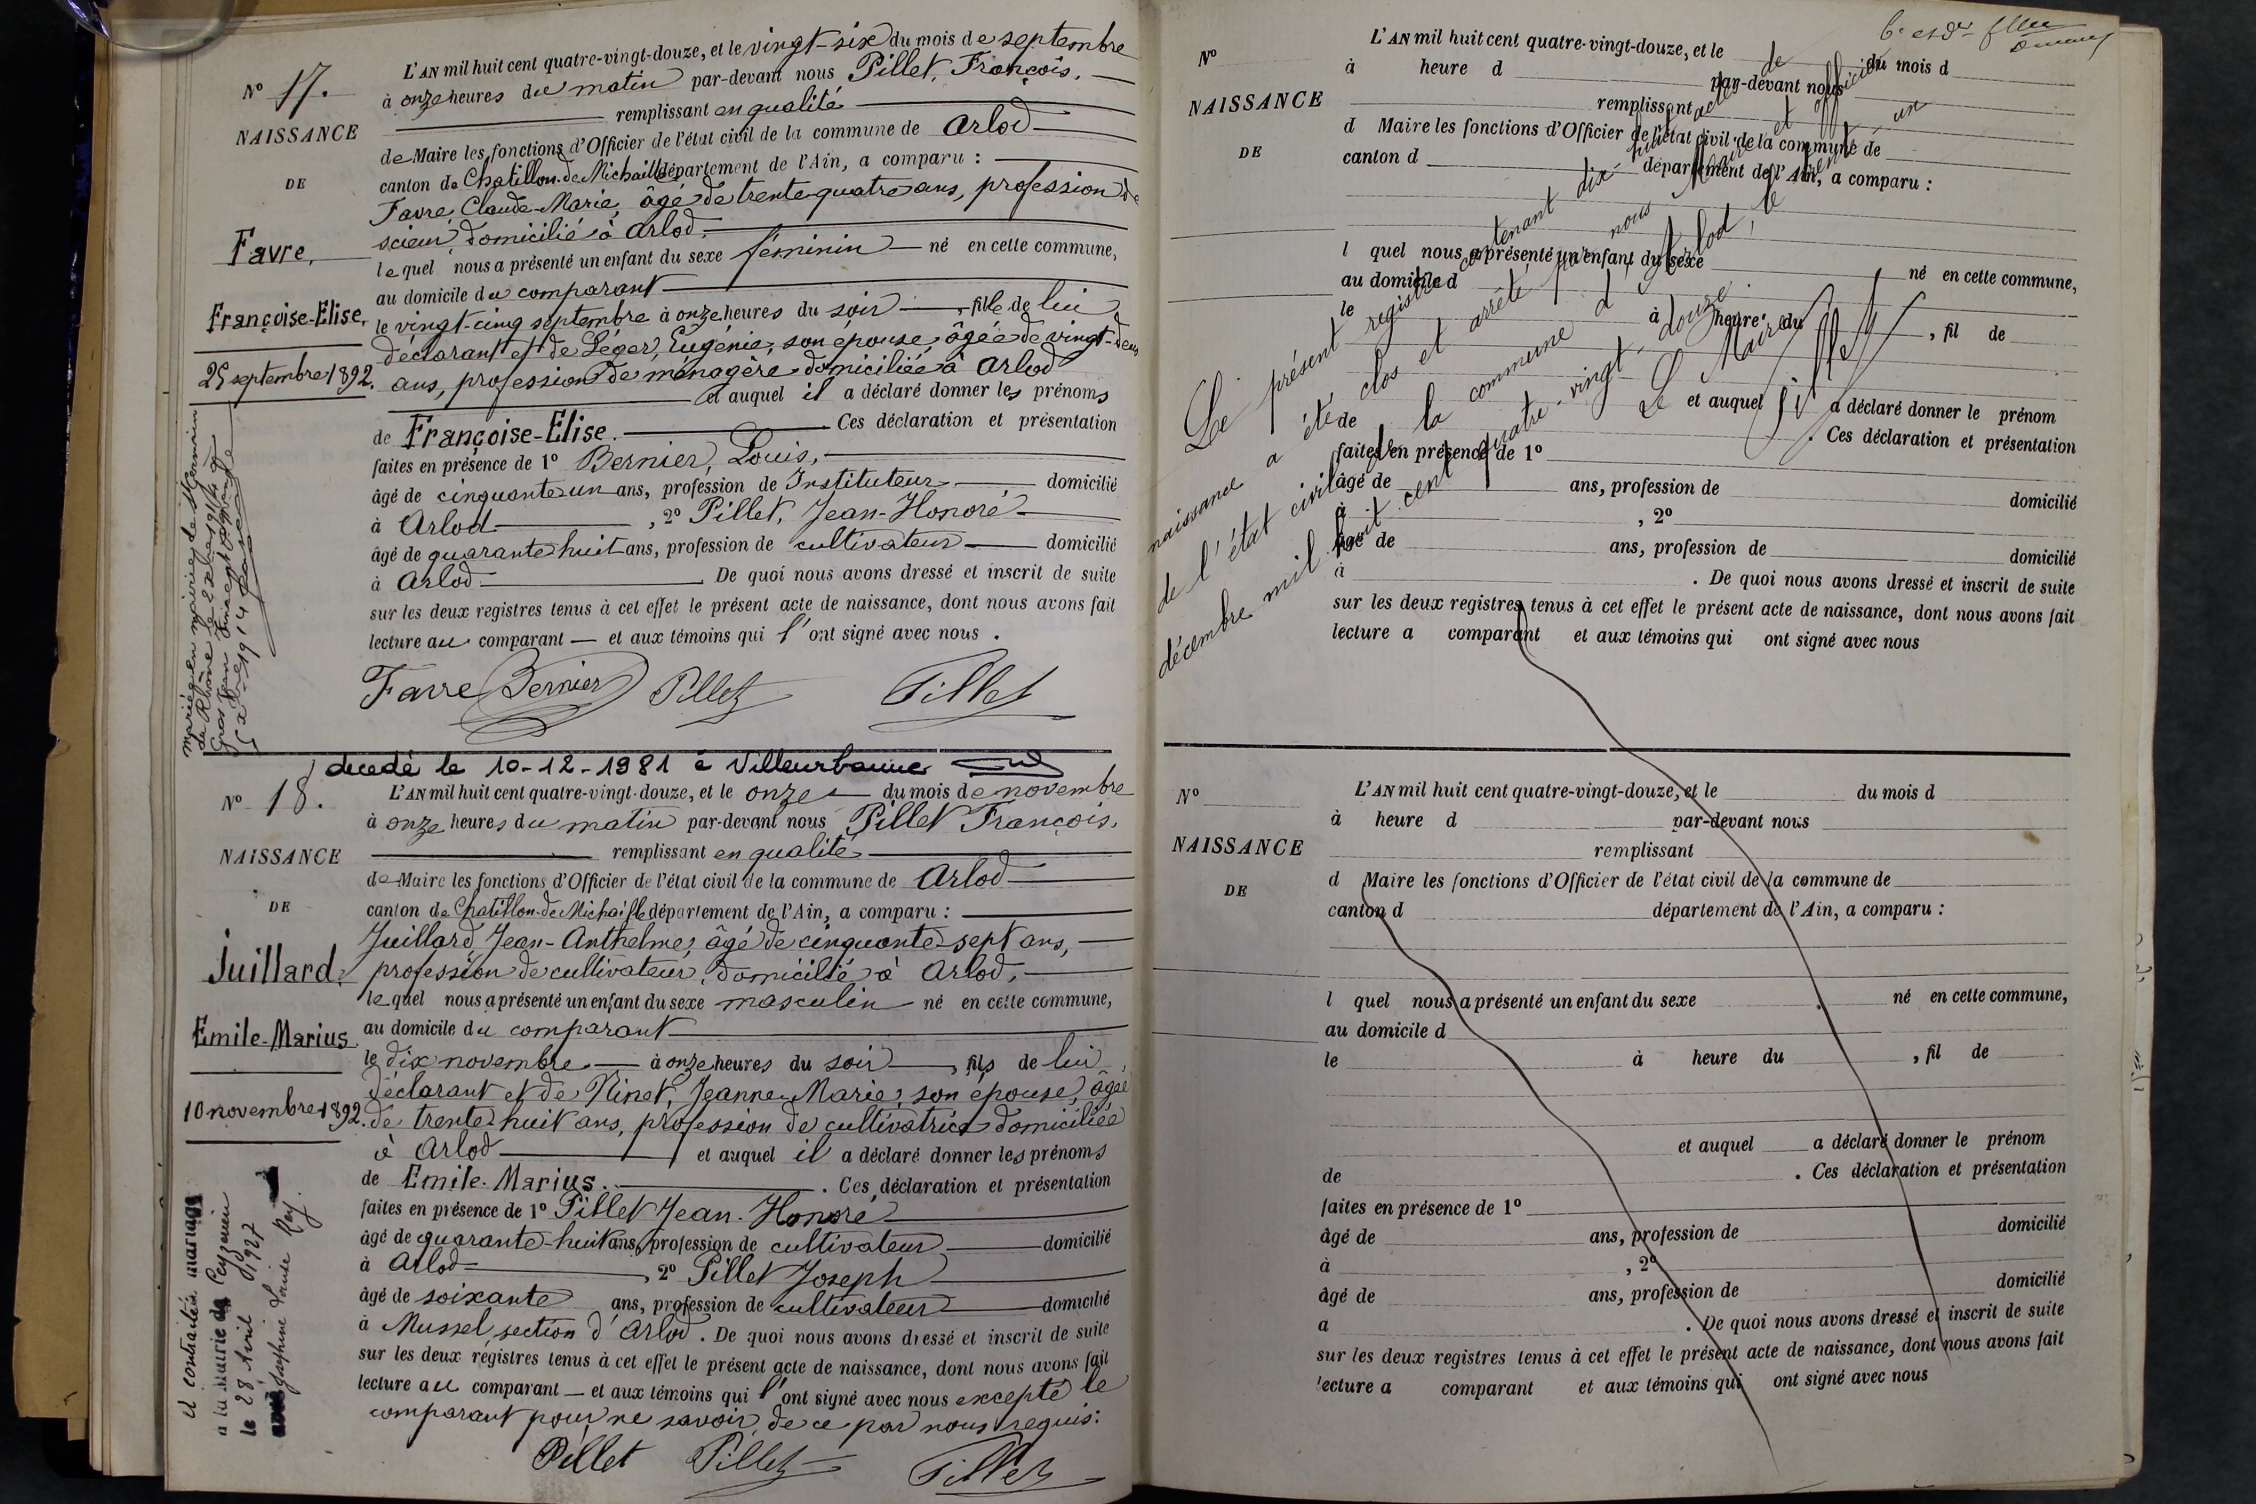 L'AN mil huit cent quatre-vingt-douze, et le vingt-six du mois de septembre
à onze heures du matin par-devant nous Pillet, François,
remplissant en qualité
de Maire les fonctions d'Officier de l'état civil de la commune de Arlod
canton de Chatillon-de-Michaille département de l'Ain, a comparu :
Favre, Claude-Marie, âgé de trente-quatre ans, profession de
scieur, domicilié à Arlod,
lequel nous a présenté un enfant du sexe féminin né en cette commune,
au domicile du comparant
le vingt-cinq septembre à onze heures du soir , fille de lui
déclarant et de Léger, Eugénie, son épouse, âgée de vingt-deux
ans, profession de ménagère domiciliée à Arlod
et auquel il a déclaré donner les prénoms
de Françoise-Elise. Ces déclaration et présentation
faites en présence de 1º Bernier, Louis,
âgé de cinquante un ans, profession de Instituteur domicilié
à Arlod , 2º Pillet, Jean-Honoré
âgé de quarante huit ans, profession de cultivateur domicilié
à Arlod De quoi nous avons dressé et inscrit de suite
sur les deux registres tenus à cet effet le présent acte de naissance, dont nous avons fait
lecture au comparant — et aux témoins qui l'ont signé avec nous .
Favre Bernier Pillet Pillet
Nº 17.
NAISSANCE
DE
Favre,
Françoise-Elise,
25 septembre 1892.
décédé le 10-12-1981 à Villeurbanne
Nº 18.
NAISSANCE
DE
Juillard,
Emile-Marius
10 novembre 1892.
il contracté mariage
a la mairie de Peyzieu
le 28 Avril 1927
Joséphine Louise Rey.
L'AN mil huit cent quatre-vingt-douze, et le onze du mois de novembre
à onze heures du matin par-devant nous Pillet François,
remplissant en qualité
de Maire les fonctions d'Officier de l'état civil de la commune de Arlod
canton de Chatillon-de-Michaille département de l'Ain, a comparu :
Juillard, Jean-Anthelme, âgé de cinquante-sept ans,
profession de cultivateur, domicilié à Arlod,
lequel nous a présenté un enfant du sexe masculin né en cette commune,
au domicile du comparant
le dix novembre à onze heures du soir , fils de lui
déclarant et de Ninet, Jeanne-Marie, son épouse, âgée
de trente huit ans, profession de cultivatrice domiciliée
à Arlod et auquel il a déclaré donner les prénoms
de Emile-Marius. . Ces déclaration et présentation
faites en présence de 1º Pillet Jean-Honoré
âgé de quarante-huit ans, profession de cultivateur domicilié
à Arlod , 2º Pillet Joseph
âgé de soixante ans, profession de cultivateur domicilié
à Mussel, section d'Arlod . De quoi nous avons dressé et inscrit de suite
sur les deux registres tenus à cet effet le présent acte de naissance, dont nous avons fait
lecture au comparant — et aux témoins qui l'ont signé avec nous excepté le
comparant pour ne savoir de ce par nous requis.
Pillet Pillet Pillet
Nº
NAISSANCE
DE
L'AN mil huit cent quatre-vingt-douze, et le du mois d
à heure d par-devant nous
remplissant
d Maire les fonctions d'Officier de l'état civil de la commune de
canton d département de l'Ain, a comparu :
l quel nous a présenté un enfant du sexe né en cette commune,
au domicile d
le à heure du , fil de
et auquel a déclaré donner le prénom
de . Ces déclaration et présentation
faites en présence de 1º
âgé de ans, profession de domicilié
à , 2º
âgé de ans, profession de domicilié
à . De quoi nous avons dressé et inscrit de suite
sur les deux registres tenus à cet effet le présent acte de naissance, dont nous avons fait
lecture a comparant et aux témoins qui ont signé avec nous
Le présent registre contenant dix-huit actes de
naissance a été clos et arrêté par nous Maire et officier
de l'état civil de la commune d'Arlod, le trente un
décembre mil huit cent quatre-vingt-douze.
Le Maire
Pillet
Nº
NAISSANCE
DE
L'AN mil huit cent quatre-vingt-douze, et le du mois d
à heure d par-devant nous
remplissant
d Maire les fonctions d'Officier de l'état civil de la commune de
canton d département de l'Ain, a comparu :
l quel nous a présenté un enfant du sexe né en cette commune,
au domicile d
le à heure du , fil de
et auquel a déclaré donner le prénom
de . Ces déclaration et présentation
faites en présence de 1º
âgé de ans, profession de domicilié
à , 2º
âgé de ans, profession de domicilié
a . De quoi nous avons dressé et inscrit de suite
sur les deux registres tenus à cet effet le présent acte de naissance, dont nous avons fait
lecture a comparant et aux témoins qui ont signé avec nous